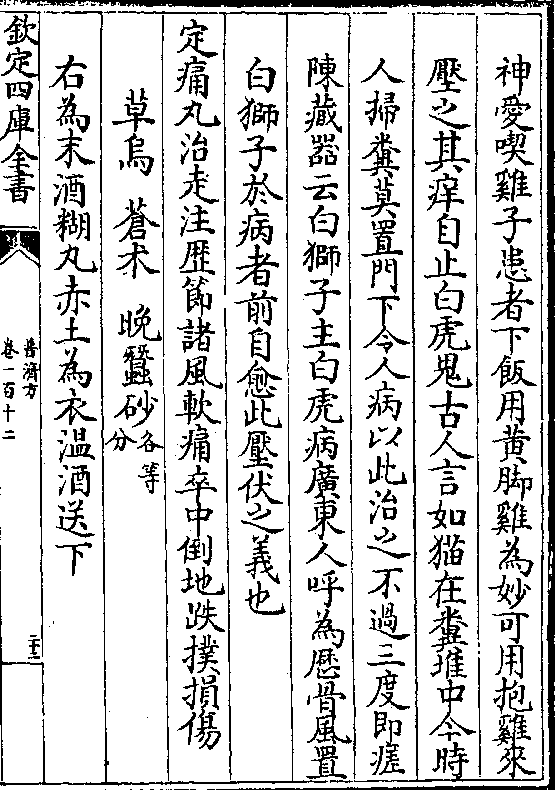 神愛喫雞子患者下飯用黄脚雞為妙可用抱雞來
壓之其痒自止白虎鬼古人言如猫在糞堆中今時
人掃糞莫置門下令人病以此治之不過三度即瘥
陳藏器云白獅子主白虎病廣東人呼為厯骨風置
白獅子於病者前自愈此壓伏之義也
定痛丸治走注歴節諸風軟痛卒中倒地跌撲損傷
草烏　蒼术　晩蠶砂各等分
右為末酒糊丸赤土為衣温酒送下
欽定四庫全書
普濟方
卷一百十二
二十二